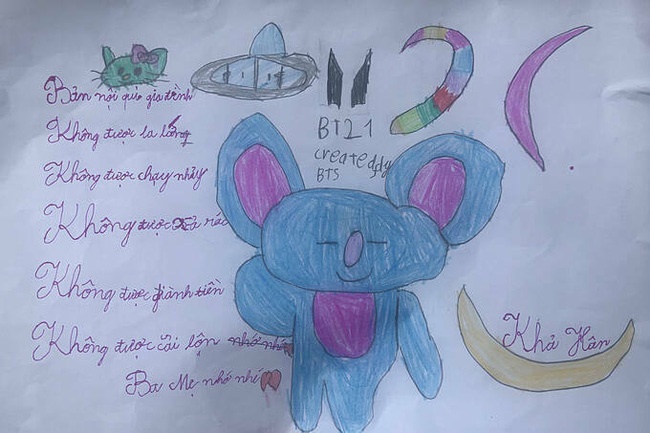 Bản nội quy gia đình
Không được la lớn
Không được chạy nhảy
Không được xả rác
Không được giành tiền
Không được cãi lộn
Ba Mẹ nhớ nhé
BT21
created
BTS
Khả Hân